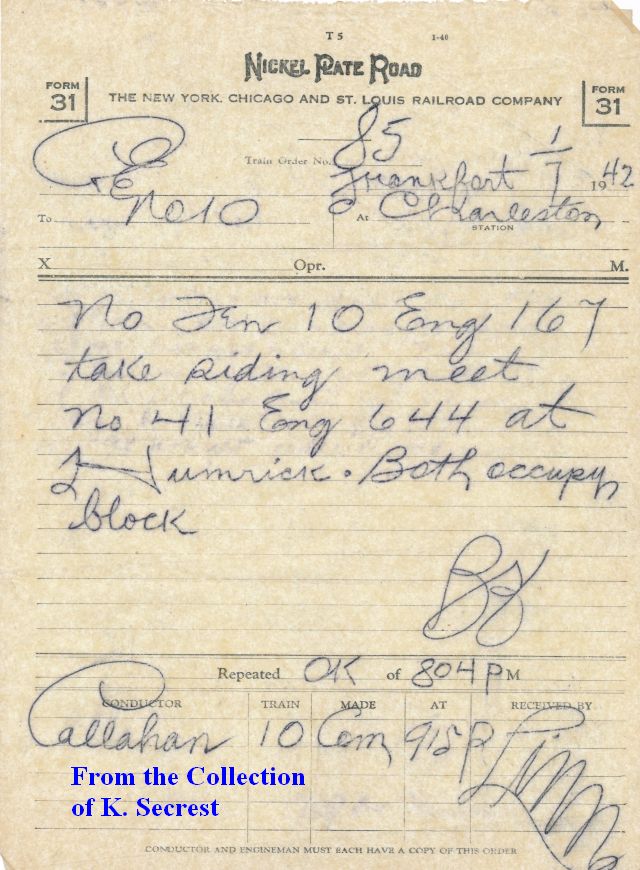 T 5 1-40
NICKEL PLATE ROAD
FORM 31 THE NEW YORK, CHICAGO AND ST. LOUIS RAILROAD COMPANY FORM 31
Train Order No. 85
Frankfort 1/7 1942
To C&E No 10 At Charleston
STATION
X Opr. M.
No Ten 10 Eng 167
take siding meet
No 41 Eng 644 at
Humrick. Both occupy
block
Repeated OK of 804 P M
CONDUCTOR TRAIN MADE AT RECEIVED BY
Callahan 10 Com 915 P
From the Collection
of K. Secrest
CONDUCTOR AND ENGINEMAN MUST EACH HAVE A COPY OF THIS ORDER